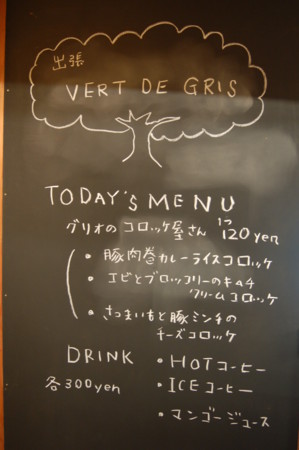 出張
VERT DE GRIS
TODAY'S MENU
グリオのコロッケ屋さん 1つ 120yen
・豚肉巻カレーライスコロッケ
・エビとブロッコリーのキッチ
クリームコロッケ
・さつまいもと豚ミンチの
チーズコロッケ
DRINK
・HOTコーヒー
各300yen
・ICEコーヒー
・マンゴージュース